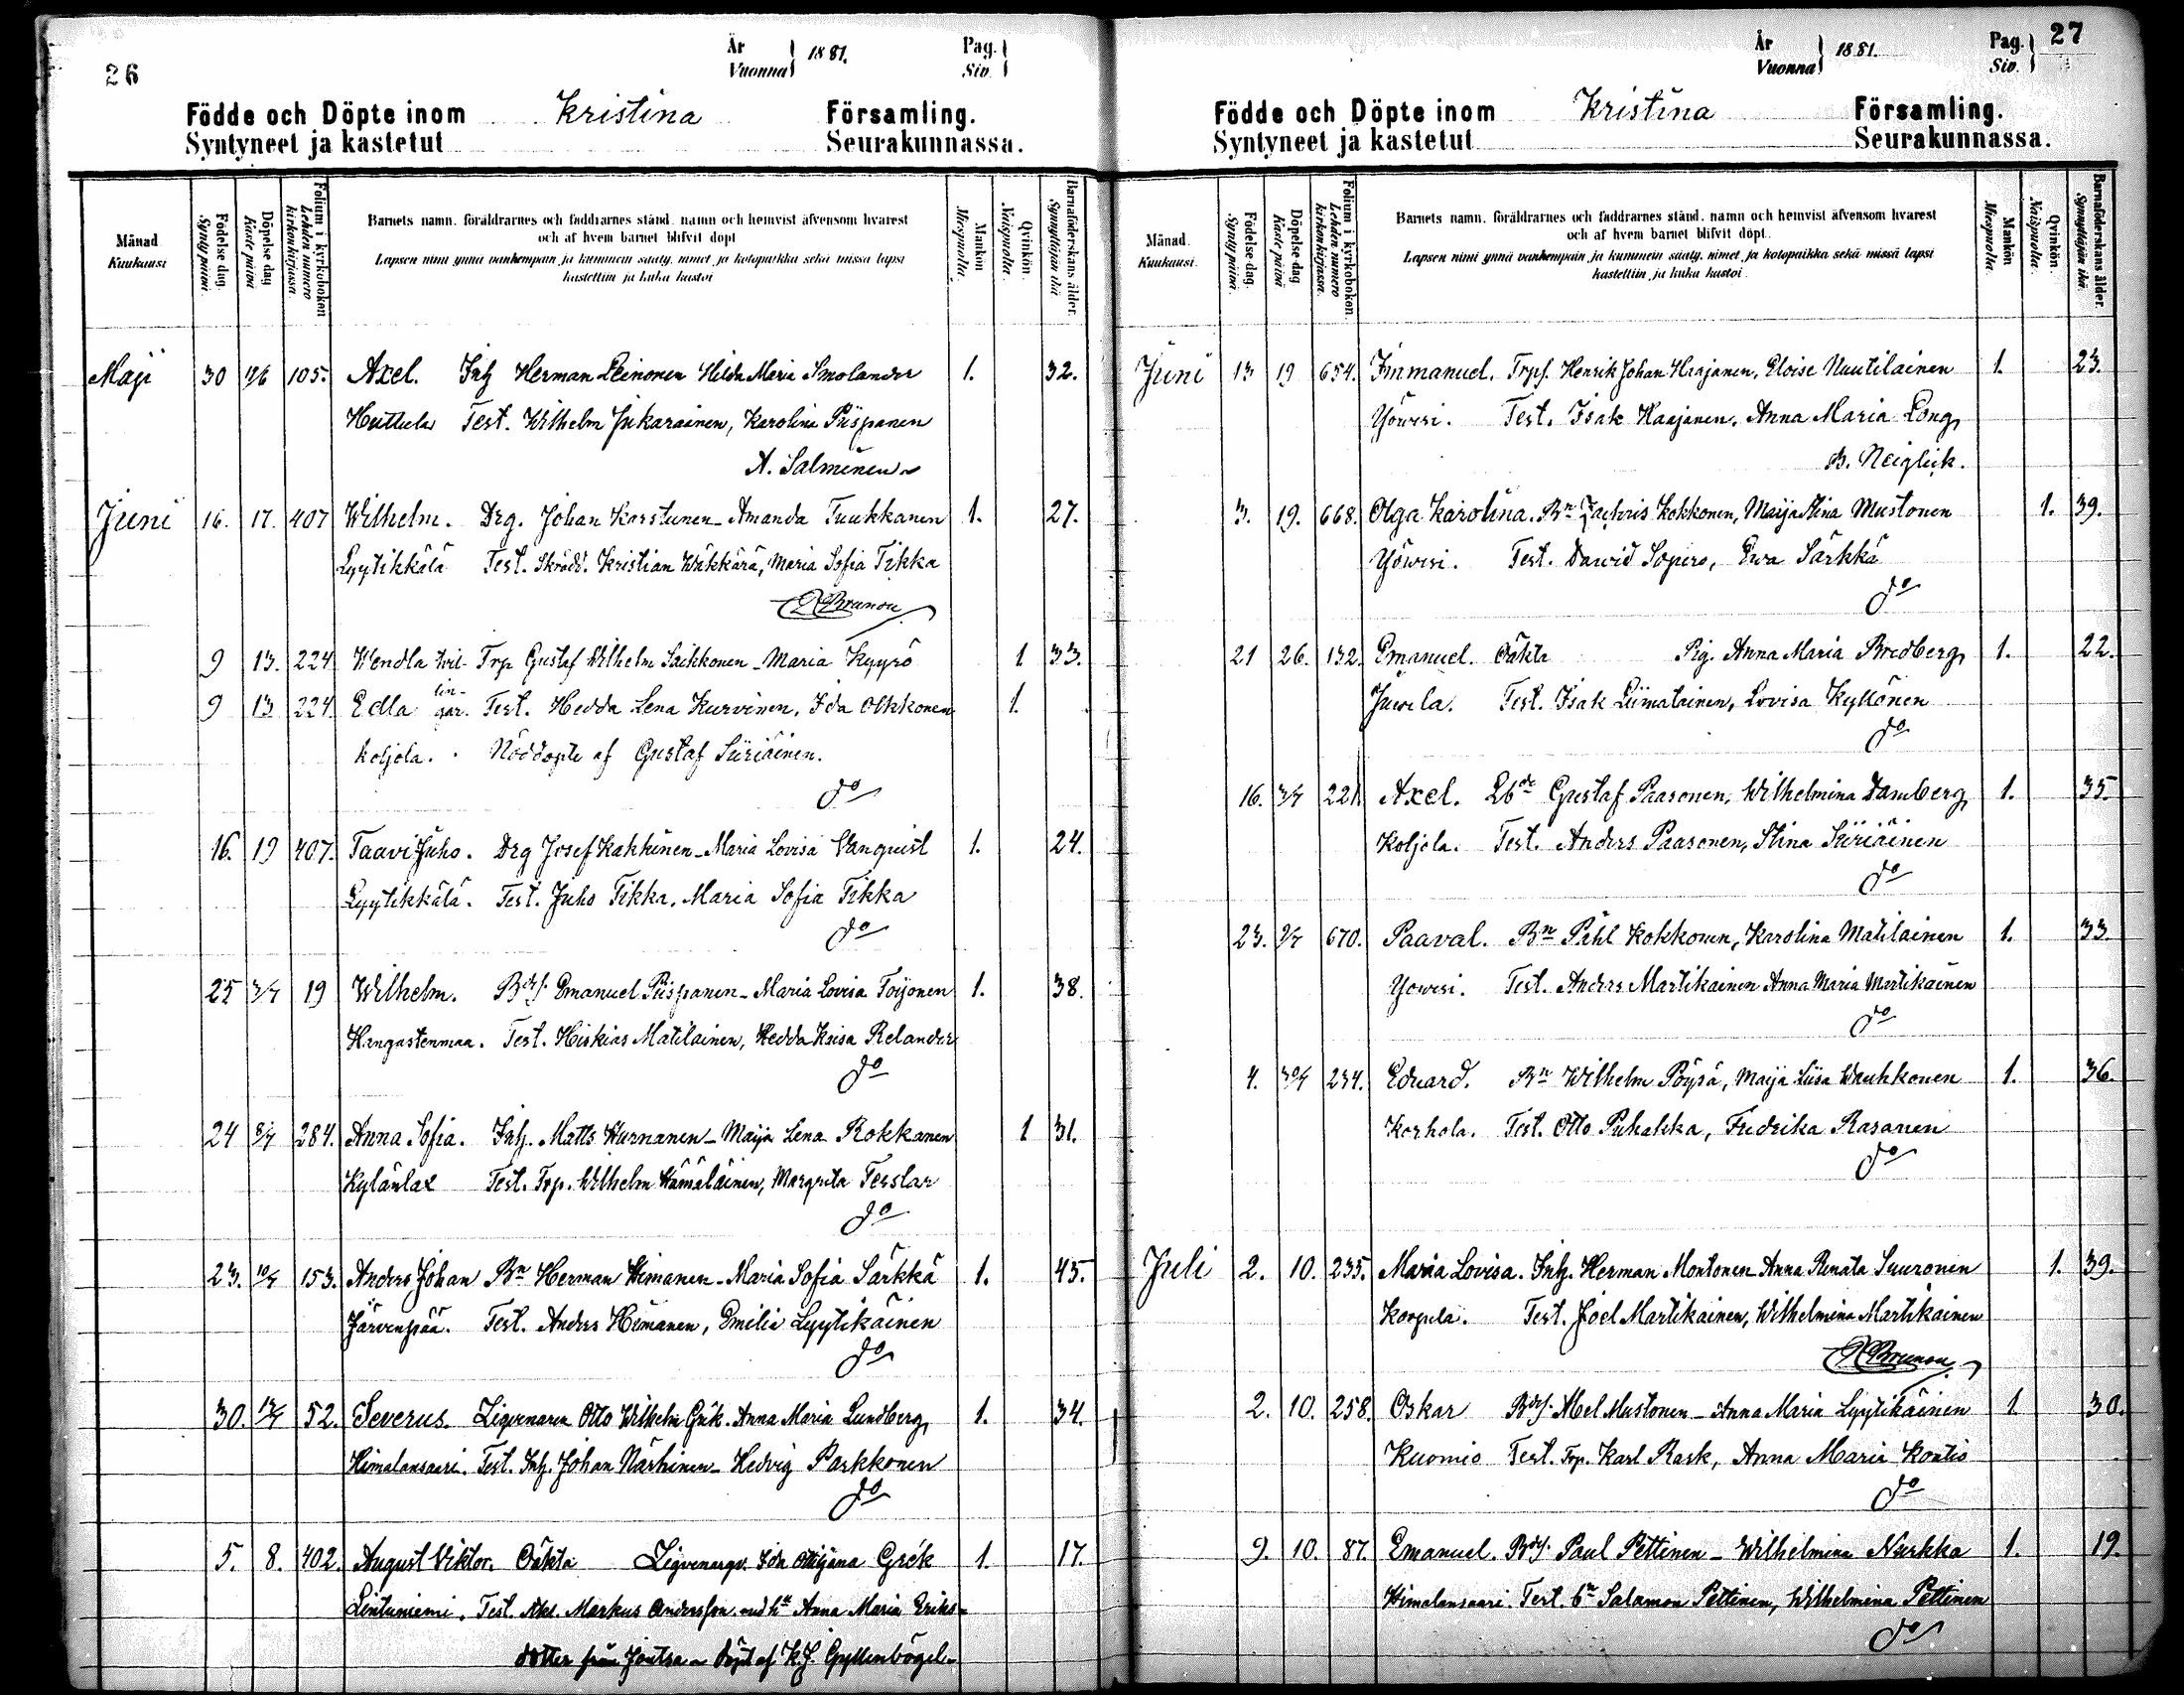 26
År
Vuonna
1881.
Pag.
Siv.
Födde och Döpte inom Kristina Församling.
Syntyneet ja kastetut Seurakunnassa.
Månad
Kuukausi
Födelse dag.
Synty päivä.
Döpelse dag
Kaste päivä
Folium i kyrkobokon
Lehden numero
kirkonkirjassa.
Barnets namn, föräldrarnes och faddrarnes stånd, namn och hemvist äfvensom hvarest
och af hvem barnet blifvit döpt
Lapsen nimi ynnä vanhempain ja kummein sääty, nimet ja kotopaikka sekä missä lapsi
kastettiin ja kuka kastoi
Mankön
Miespuolta.
Qvinkön
Naispuolta.
Barnaföderskans ålder.
Synnyttäjän ikä
Maji 30 12/6 105. Axel. Inh Herman Leinonen Hilda Maria Smolander 1. 32.
Huttula Test. Wilhelm Jukarainen, Karolina Piispanen
A. Salminen
Juni 16. 17. 407 Wilhelm. Drg. Johan Karstunen - Amanda Tuukkanen 1. 27.
Lyytikkälä Test. Skrädd. Kristian Wäkkärä, Maria Sofia Tikka
Brunou
9 13. 224 Wendla tvil- Trp Gustaf Wilhelm Saikkonen - Maria Kyyrö 1 33.
9 13 224 Edla lin-gar. Test. Hedda Lena Kurvinen, Ida Olkkonen 1.
Koljola. Nöddöpte af Gustaf Siiriäinen.
do
16. 19 407. Taavi Juho. Drg Josef Kakkinen - Maria Lovisa Vanquist 1. 24.
Lyytikkälä. Test. Juho Tikka, Maria Sofia Tikka
do
25 3/7 19 Wilhelm. Bds. Emanuel Piispanen - Maria Lovisa Toijonen 1. 38.
Hangastenmaa. Test. Hiskias Matilainen, Hedda Kaisa Relander
do
24 8/7 284. Anna Sofia. Inh. Matts Hurnanen - Maija Lena Rokkanen 1 31.
Kylänlax Test. Trp. Wilhelm Hämäläinen, Margreta Ferslar
do
23. 10/7 153. Anders Johan Bn Herman Himanen - Maria Sofia Särkkä 1. 45.
Järvenpää. Test. Anders Himanen, Emilia Lyytikäinen
do
30. 12/7 52. Severus. Ligvenaren Otto Wilhelm Grék. Anna Maria Lundberg 1. 34.
Himalansaari. Test. Inh. Johan Närhinen - Hedvig Parkkonen
do
5. 8. 402. August Viktor. Oäkta Ligvenarqv. Ida Grék 1. 17.
Lintuniemi. Test. Markus Andersson med hn Anna Maria Eriks-
dotter från Joutsa Döpt af K.J. Gyllenbögel
27
År
Vuonna
1881.
Pag.
Siv.
Födde och Döpte inom Kristina Församling.
Syntyneet ja kastetut Seurakunnassa.
Månad.
Kuukausi.
Födelse dag.
Synty päivä.
Döpelse dag
Kaste päivä
Folium i kyrkobokon.
Lehden numero
kirkonkirjassa.
Barnets namn, föräldrarnes och faddrarnes stånd, namn och hemvist äfvensom hvarest
och af hvem barnet blifvit döpt.
Lapsen nimi ynnä vanhempain ja kummein sääty, nimet ja kotopaikka sekä missä lapsi
kastettiin ja kuka kastoi
Mankön
Miespuolta.
Qvinkön.
Naispuolta.
Barnaföderskans ålder.
Synnyttäjän ikä.
Juni 13 19 654. Immanuel. Trps. Henrik Johan Haajanen, Eloise Nuutilainen 1. 23.
Yöwesi. Test. Isak Haajanen, Anna Maria Long
B. Neiglick.
3. 19. 668. Olga Karolina. Bn Zachris Kokkonen, Maija Stina Mustonen 1. 39.
Yöwesi. Test. Dawid Sopero, Ewa Särkkä
do
21 26. 132. Emanuel. Oäkta Pig. Anna Maria Bredberg 1. 22.
Juwela. Test. Isak Liimatainen, Lovisa Kyllönen
do
16. 3/7 221 Axel. Lbde Gustaf Paasonen, Wilhelmina Damberg 1. 35.
Koljola. Test. Anders Paasonen, Stina Siiriäinen
do
23. 3/7 670. Paaval. Bn Påhl Kokkonen, Karolina Matilainen 1. 33.
Yöwesi. Test. Anders Martikainen Anna Maria Martikainen
do
4. 30/7 234. Eduard. Bn Wilhelm Pöyså, Maija Liisa Wauhkonen 1. 36.
Korhola. Test. Otto Puhakka, Fredrika Rasanen
do
Juli 2. 10. 235. Maria Lovisa. Inh. Herman Montonen Anna Renata Suuronen 1. 39.
Korpela. Test. Joel Martikainen, Wilhelmina Martikainen
Brunou
2. 10. 258. Oskar Bds. Abel Mustonen - Anna Maria Lyytikäinen 1 30.
Kuomio Test. Trp. Karl Rask, Anna Maria Kontio
do
9. 10. 87. Emanuel. Bds. Paul Pettinen - Wilhelmina Nurkka 1. 19.
Himalansaari. Test. bn Salamon Pettinen, Wilhelmina Pettinen
do